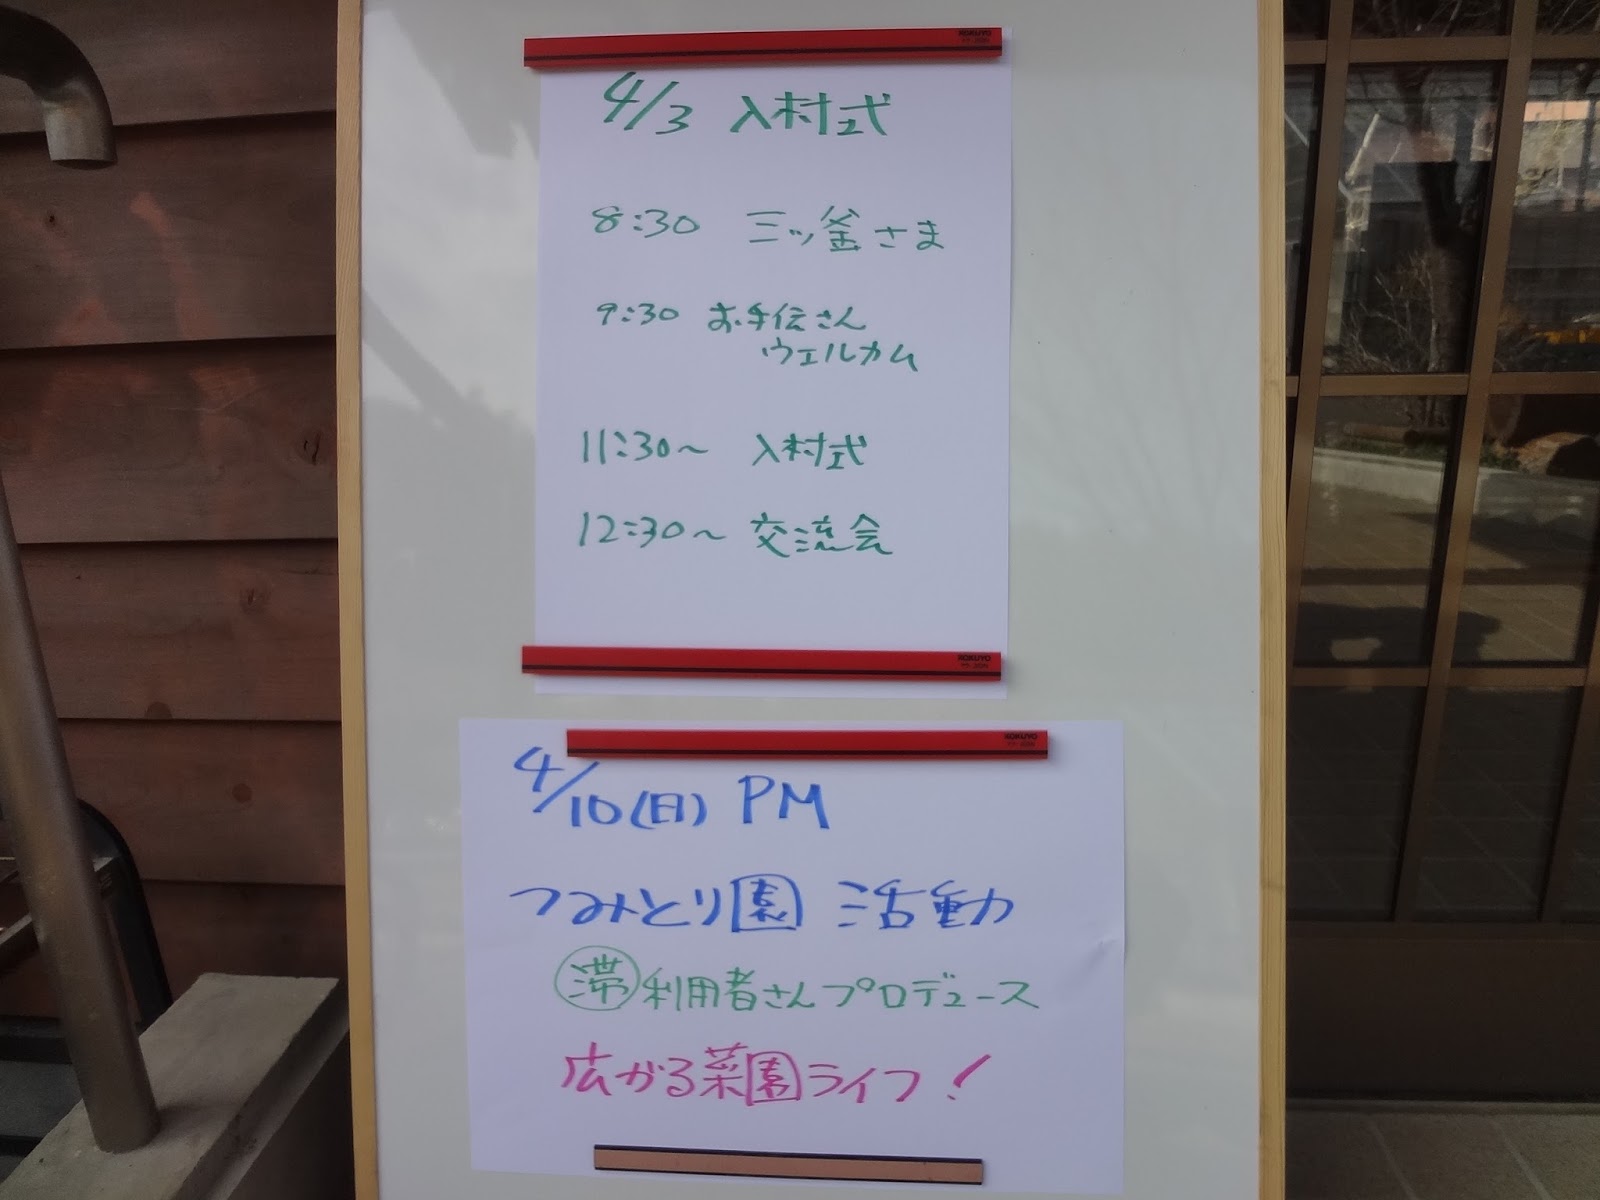 KOKUYO
4/3 入村式
8:30 三ッ釜さま
9:30 お手伝さん
ウェルカム
11:30～ 入村式
12:30～ 交流会
KOKUYO
KOKUYO
4/10(日) PM
つみとり園 活動
滞利用者さんプロデュース
広がる菜園ライフ!